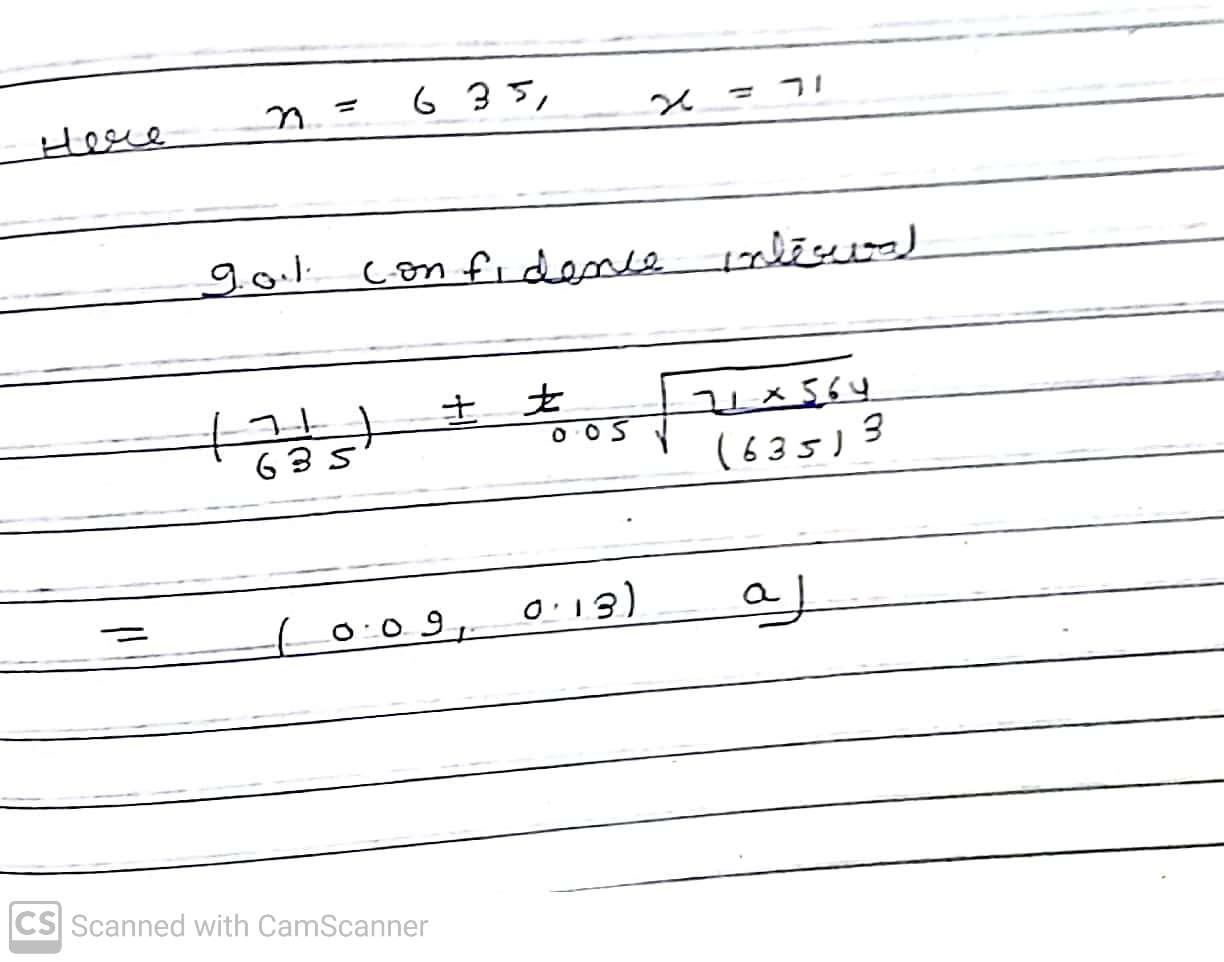 Here n = 635, x = 71
90% confidence interval
(71/635) ± z0.05 √(71 × 564/(635)3)
= (0.09, 0.13) a)
CS Scanned with CamScanner